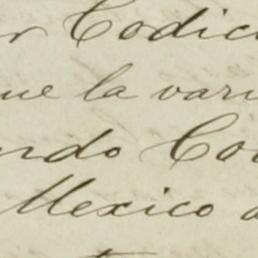 r Codic
ue la vari
ndo Co
Mexico a